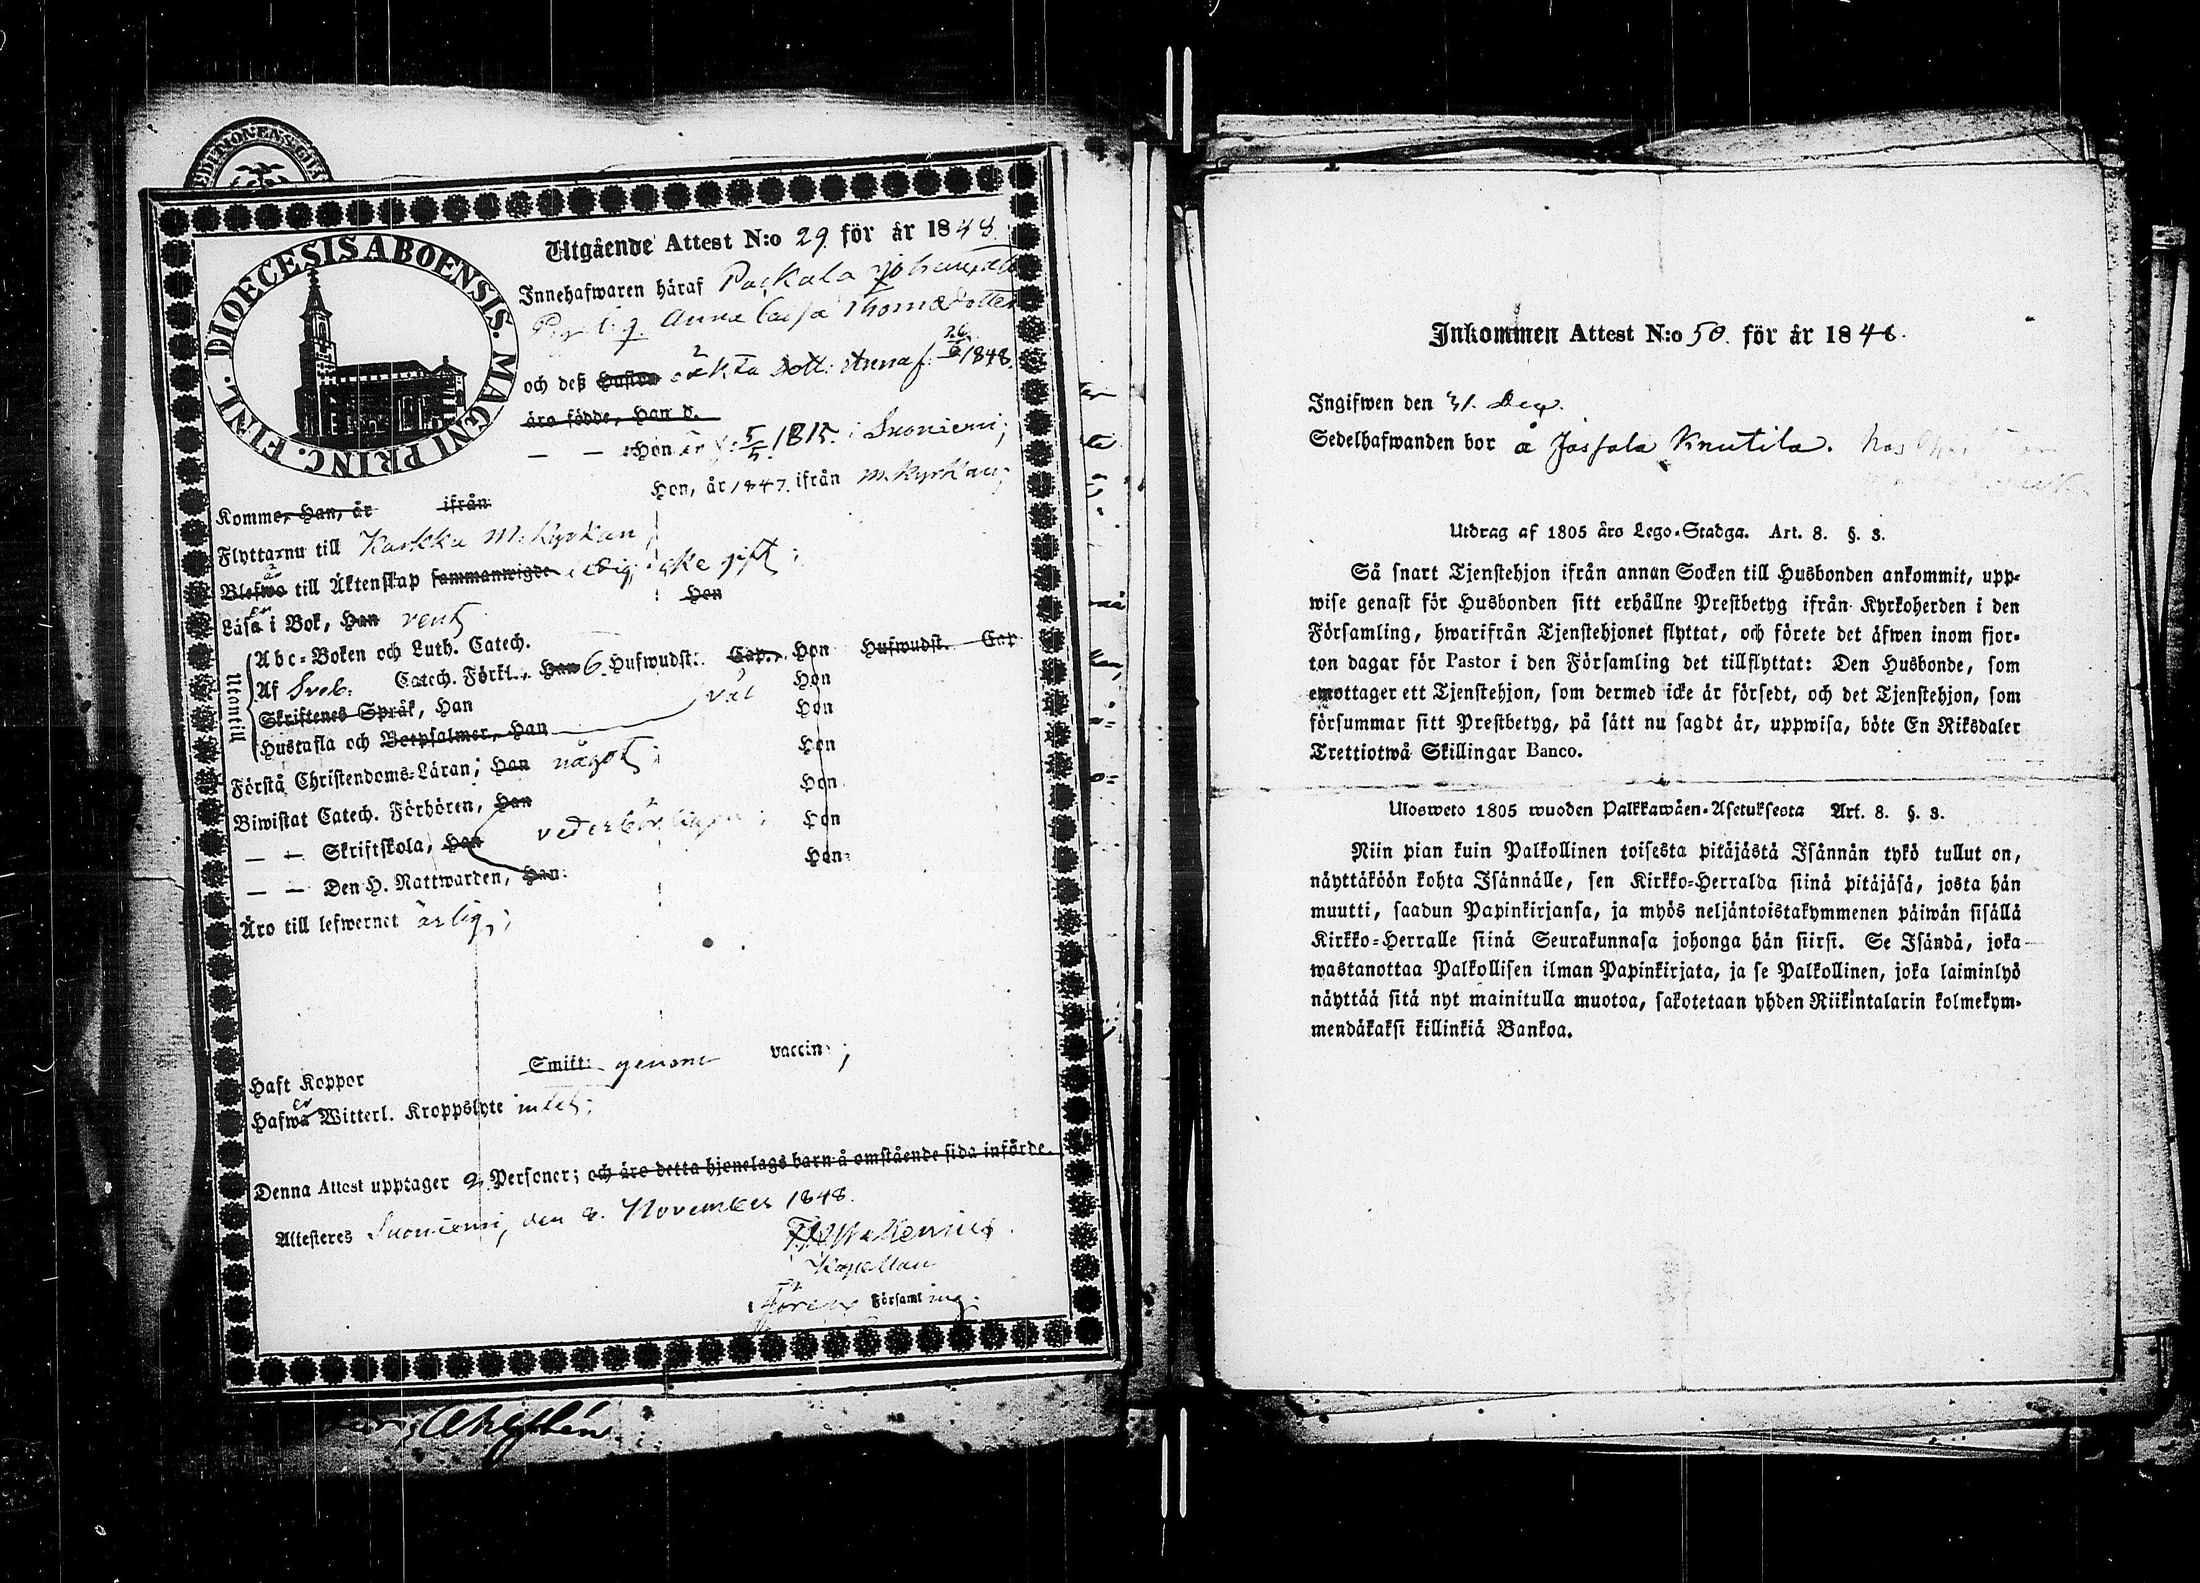 DIOECESIS ABOENSIS. MAGNI PRINC. FINL.
Utgående Attest N:o 29. för år 1848
Innehafwaren häraf Packala
Pig. Anna Caisa Thomædotter
och deß hustru oäkta Dott: Anna f. 1848.
äro födde, Han d.
— — Hon är f. 5/5 1815. i Suoniemi;
Komme, Han, år ifrån Hon, år 1847. ifrån M. Kyrkan;
Flyttar nu till Karkku M. Kyrkan
Blefwo till Äktenskap sammanwigde ledig, icke gift;
Läsa i Bok, Han rent Hon
Utontill
Abc-Boken och Luth. Catech.
Af Sveb. Catech. Förkl., Han 6. Hufwudst. Cap. Hon Hufwudst. Cap
Skriftenes Språk, Han väl Hon
Hustafla och Botpsalmer, Han Hon
Förstå Christendoms-Läran; Han något; Hon
Biwistat Catech. Förhören, Han Hon
— — Skriftskola, Han vederbörligen; Hon
— — Den H. Nattwarden, Han Hon
Äro till lefwernet ärlig;
Haft Koppor Smitt: genom vaccin;
Hafwa Witterl. Kroppslyte intet;
Denna Attest upptager 2 Personer; och äro detta hjonelags barn å omstående sida införde
Attesteres Suoniemi, den 8. November 1848.
Wallenius.
Kapellan
Församling.
Inkommen Attest N:o 50. för år 1848.
Ingifwen den 31. Dec.
Sedelhafwanden bor å Jassala Knutila.
Utdrag af 1805 års Lego-Stadga. Art. 8. §. 3.
Så snart Tjenstehjon ifrån annan Socken till Husbonden ankommit, upp-
wise genast för Husbonden sitt erhållne Prestbetyg ifrån Kyrkoherden i den
Församling, hwarifrån Tjenstehjonet flyttat, och förete det äfwen inom fjor-
ton dagar för Pastor i den Församling det tillflyttat: Den Husbonde, som
emottager ett Tjenstehjon, som dermed icke är försedt, och det Tjenstehjon, som
försummar sitt Prestbetyg, på sätt nu sagdt är, uppwisa, böte En Riksdaler
Trettiotwå Skillingar Banco.
Ulosweto 1805 wuoden Palkkawäen-Asetuksesta Art. 8. §. 3.
Niin pian kuin Palkollinen toisesta pitäjästä Isännän tykö tullut on,
näyttäköön kohta Isännälle, sen Kirkko-Herralda siinä pitäjäsä, josta hän
muutti, saadun Papinkirjansa, ja myös neljäntoistakymmenen päiwän sisällä
Kirkko-Herralle siinä Seurakunnasa johonga hän siirsi. Se Isändä, joka
wastanottaa Palkollisen ilman Papinkirjata, ja se Palkollinen, joka laiminlyö
näyttää sitä nyt mainitulla muotoa, sakotetaan yhden Riikintalarin kolmekym-
mendäkaksi killinkiä Bankoa.